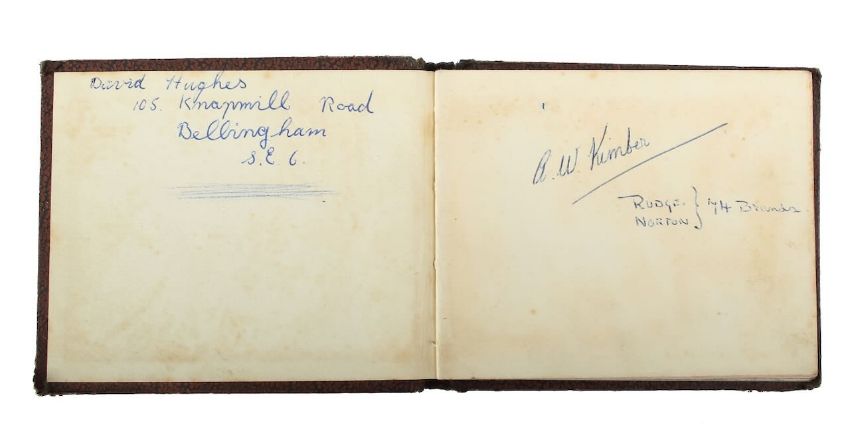 David Hughes
105. Knapmill Road
Bellingham
S.E 6.
A. W. Kimber
RUDGE. } Brands.
NORTON